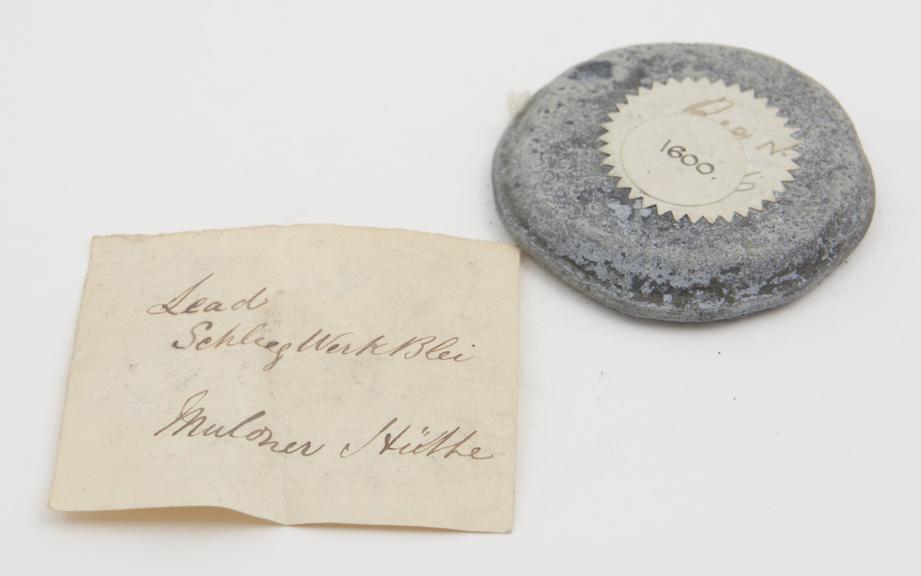 Lead
Schlieg Werk Blei
Muldner Hütte
1600.